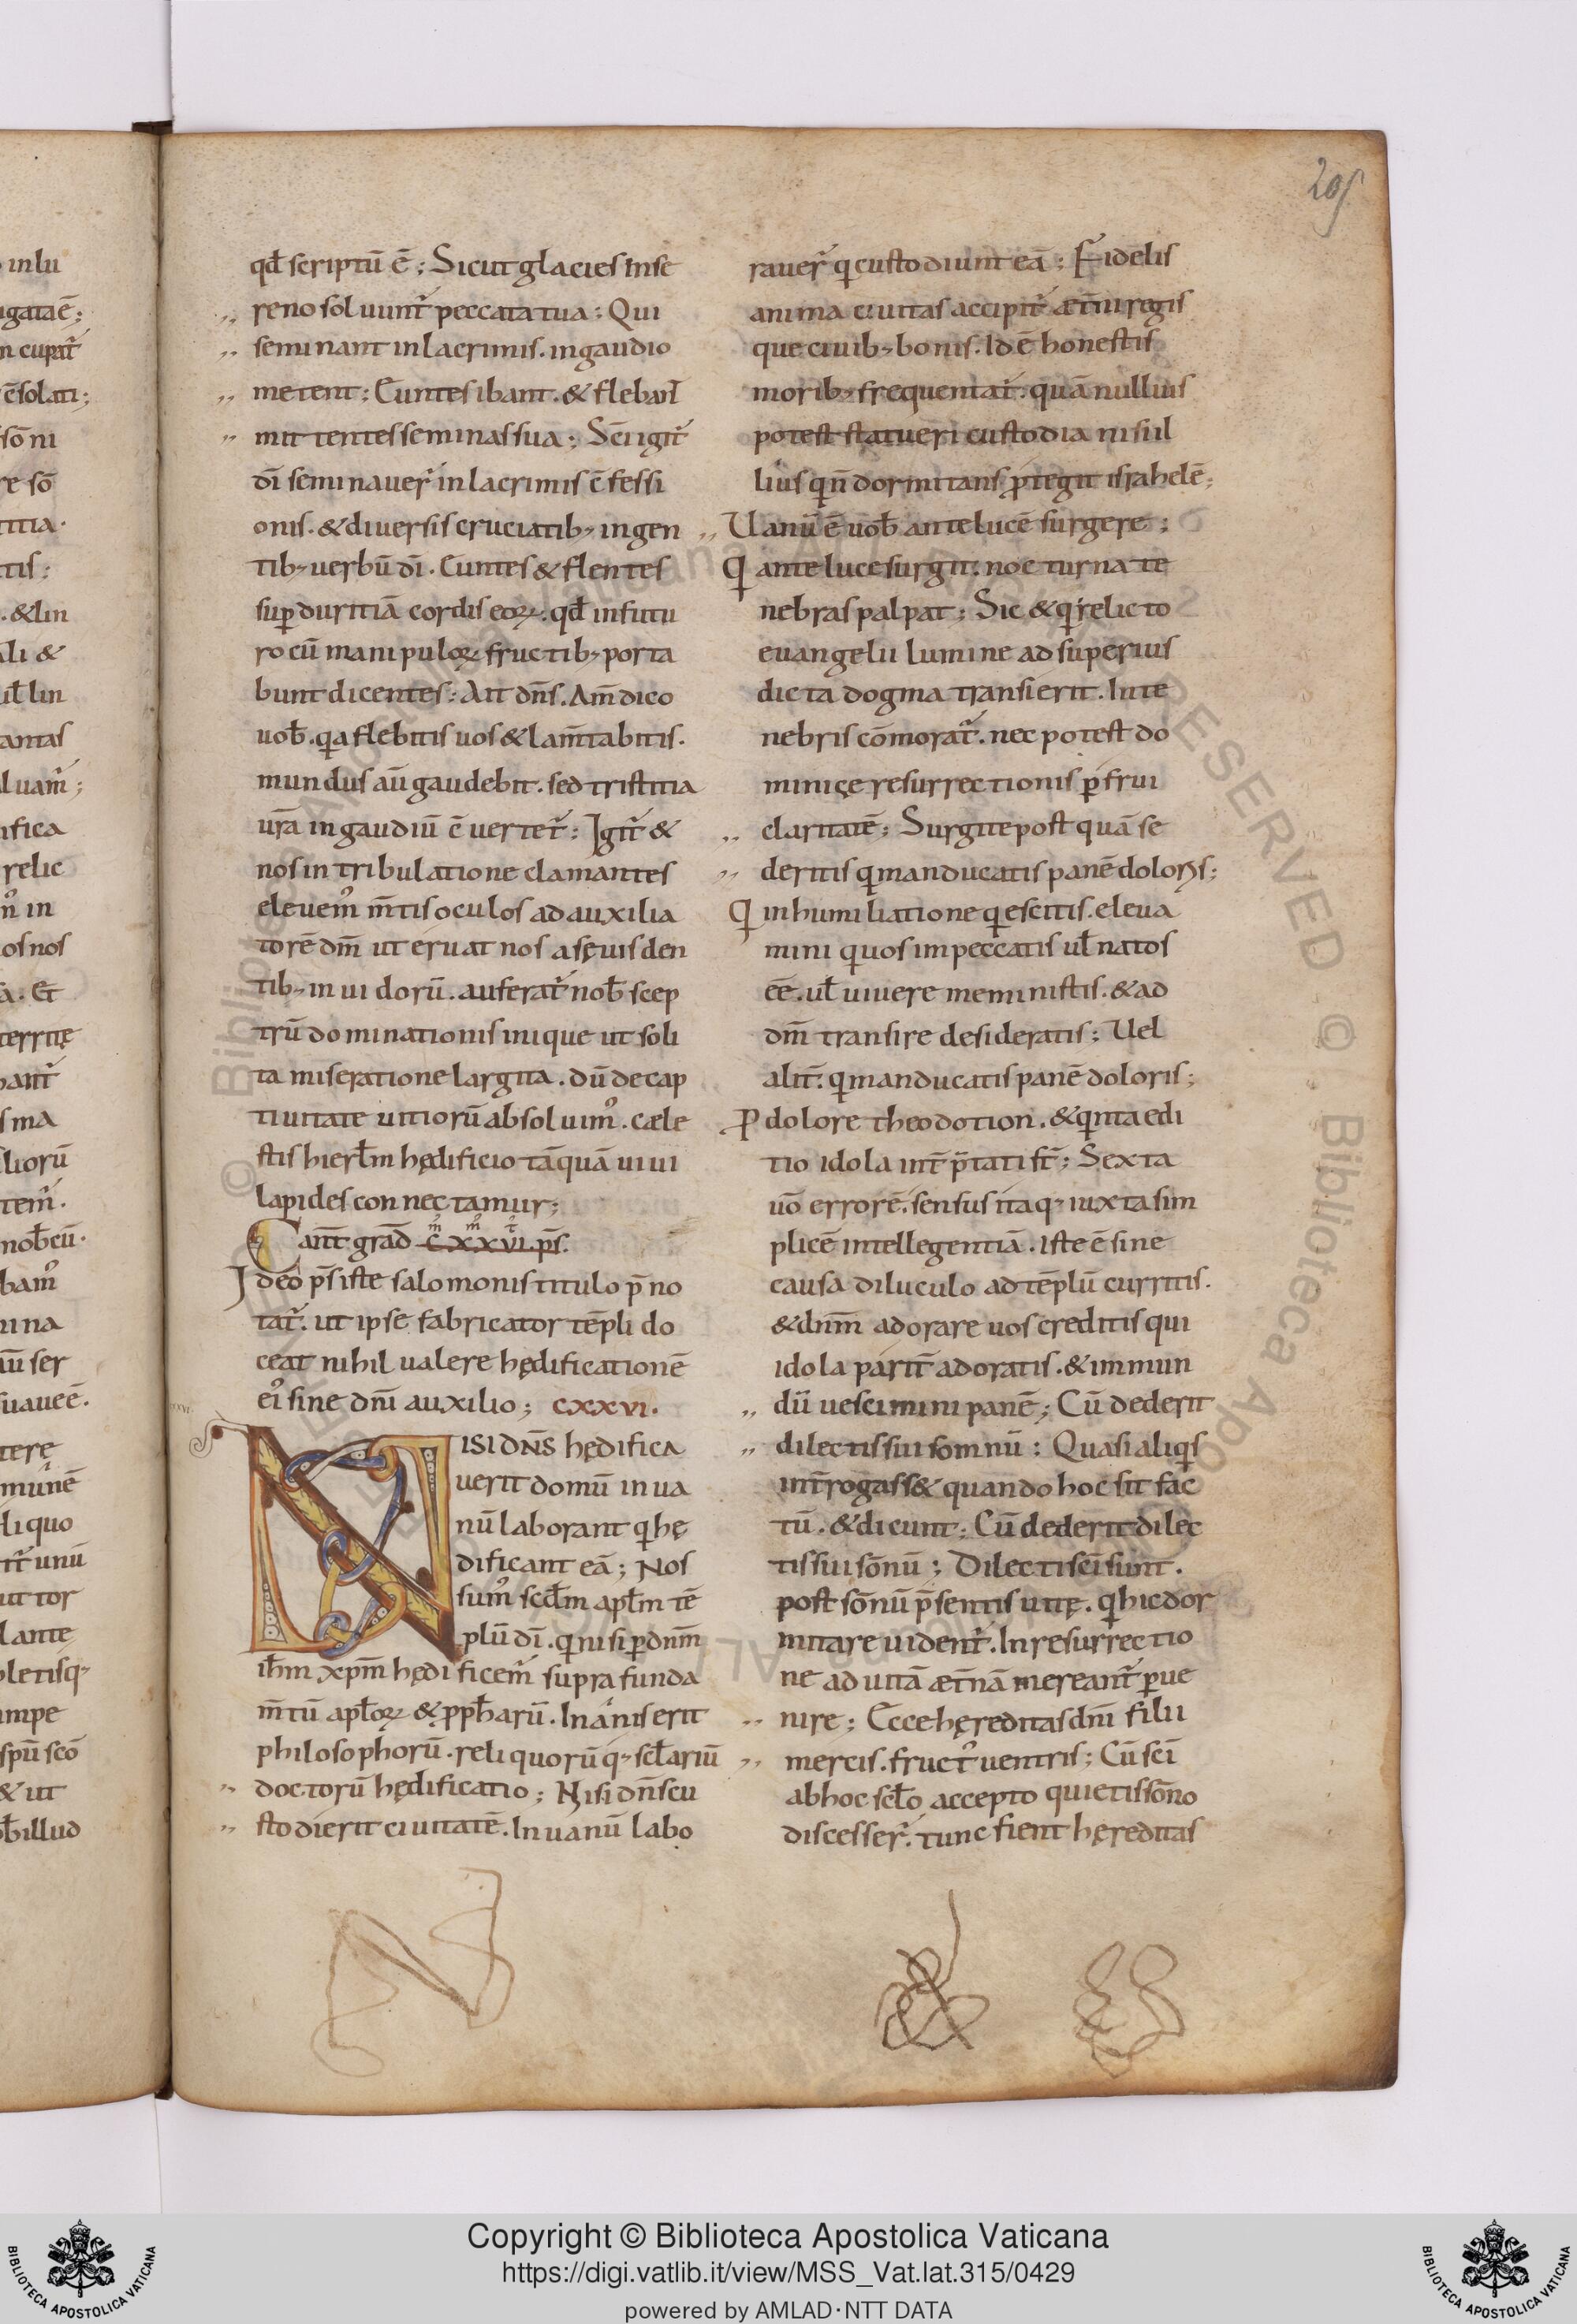 205
qđ scriptū ē; Sicut glacies inse
reno soluunt᷑ peccata tua: Qui
seminant in lacrimis. in gaudio
metent: Euntes ibant. & flebant
mittentes semina sua; Sc̄i igit᷑
dī seminauer᷑ in lacrimis c̄fessi
onis. & diuersis cruciatib; in gen
tib; uerbū dī. Euntes & flentes
sup duritiā cordis eoꝝ. qđ in futu
ro cū manipuloꝝ fructib; porta
bunt dicentes: Ait dn̄s. Am̄ dico
uob̄. qa flebitis uos & lam̄tabitis.
mundus aū gaudebit. sed tristitia
ur̄a in gaudiū c̄uertet᷑: Igit᷑ &
nos in tribulatione clamantes
eleuem᷒ m̄tis oculos ad auxilia
torē dm̄ ut eruat nos a sęuis den
tib; inuidorū. auferat᷑ nob̄ scep
trū dominationis inique ut soli
ta miseratione largita. dū de cap
tiuitate uitiorū absoluim᷒. cæle
stis hierƚm hędificio tāquā uiui
lapides connectamur;
Cant̄ grad̄ c̄xxvi. ps̄.
Ideo ps̄ iste salomonis titulo p̄no
tat᷑. ut ipse fabricator tēpli do
ceat nihil ualere hędificationē
ei᷒ sine dn̄i auxilio; cxxvi.
NISI DN̄S hędifica
uerit domū in ua
nū laborant q hę
dificant eā; Nos
sum᷒ scđm apƚm tē
plū dī. q nisi p dnm̄
ih̄m xp̄m hędificem᷒ supra funda
m̄tū apƚoꝝ & pph̄arū. Inanis erit
philosophorū. reliquorūq; scƚariū
doctorū hędificatio; Nisi dn̄s cu
stodierit ciuitatē. In uanū labo
rauer᷑ q custodiunt eā; Fidelis
anima ciuitas accipit᷑ æt̄ni regis
que ciuib; bonis. Id ē honestis
morib; frequentat᷑. quā nullius
potest statueri custodia nisi il
lius qn̄ dormitans ꝓtegit israhelē;
Uanū ē uob̄ ante lucē surgere;
Q ante lucē surgit. nocturna te
nebras palpat; Sic & q relicto
euangelii lumine ad superius
dicta dogma transierit. In te
nebris cōmorat᷑. nec potest do
minicę resurrectionis pfrui
claritatē; Surgite post quā se
deritis q manducatis panē doloris;
Q in humiliatione qescitis. eleua
mini quos im peccatis uƚ natos
ēē. uƚ uiuere meministis. & ad
dm̄ transire desideratis; Uel
alit᷑. q manducatis panē doloris;
P dolore theodotion. & qnta edi
tio idola int̄p̄tati st̄; Sexta
uō errorē. sensus itaq; iuxta sim
plicē intellegentiā. iste ē sine
causa diluculo ad tēplū curritis.
& dnm̄ adorare uos creditis qui
idola parit᷑ adoratis. & immun
dū uescimini panē; Cū dederit
dilectis sui somnū: Quasi aliqs
int̄rogass& quando hoc sit fac
tū. & dicunt: Cū dederit dilec
tis sui sōnū; Dilecti sc̄i sunt.
post sōnū p̄sentis uitę. q hic dor
mitare uident᷑. In resurrectio
ne ad uitā æt̄nā mereant᷑ pue
nire; Ecce hęreditas dn̄i filii
mercis. fruct᷒ uentris; Cū sc̄i
ab hoc scƚo accepto quietis sōno
discesser᷑. tunc fient hęreditas
Copyright © Biblioteca Apostolica Vaticana
https://digi.vatlib.it/view/MSS_Vat.lat.315/0429
powered by AMLAD·NTT DATA
BIBLIOTECA APOSTOLICA VATICANA
BIBLIOTECA APOSTOLICA VATICANA